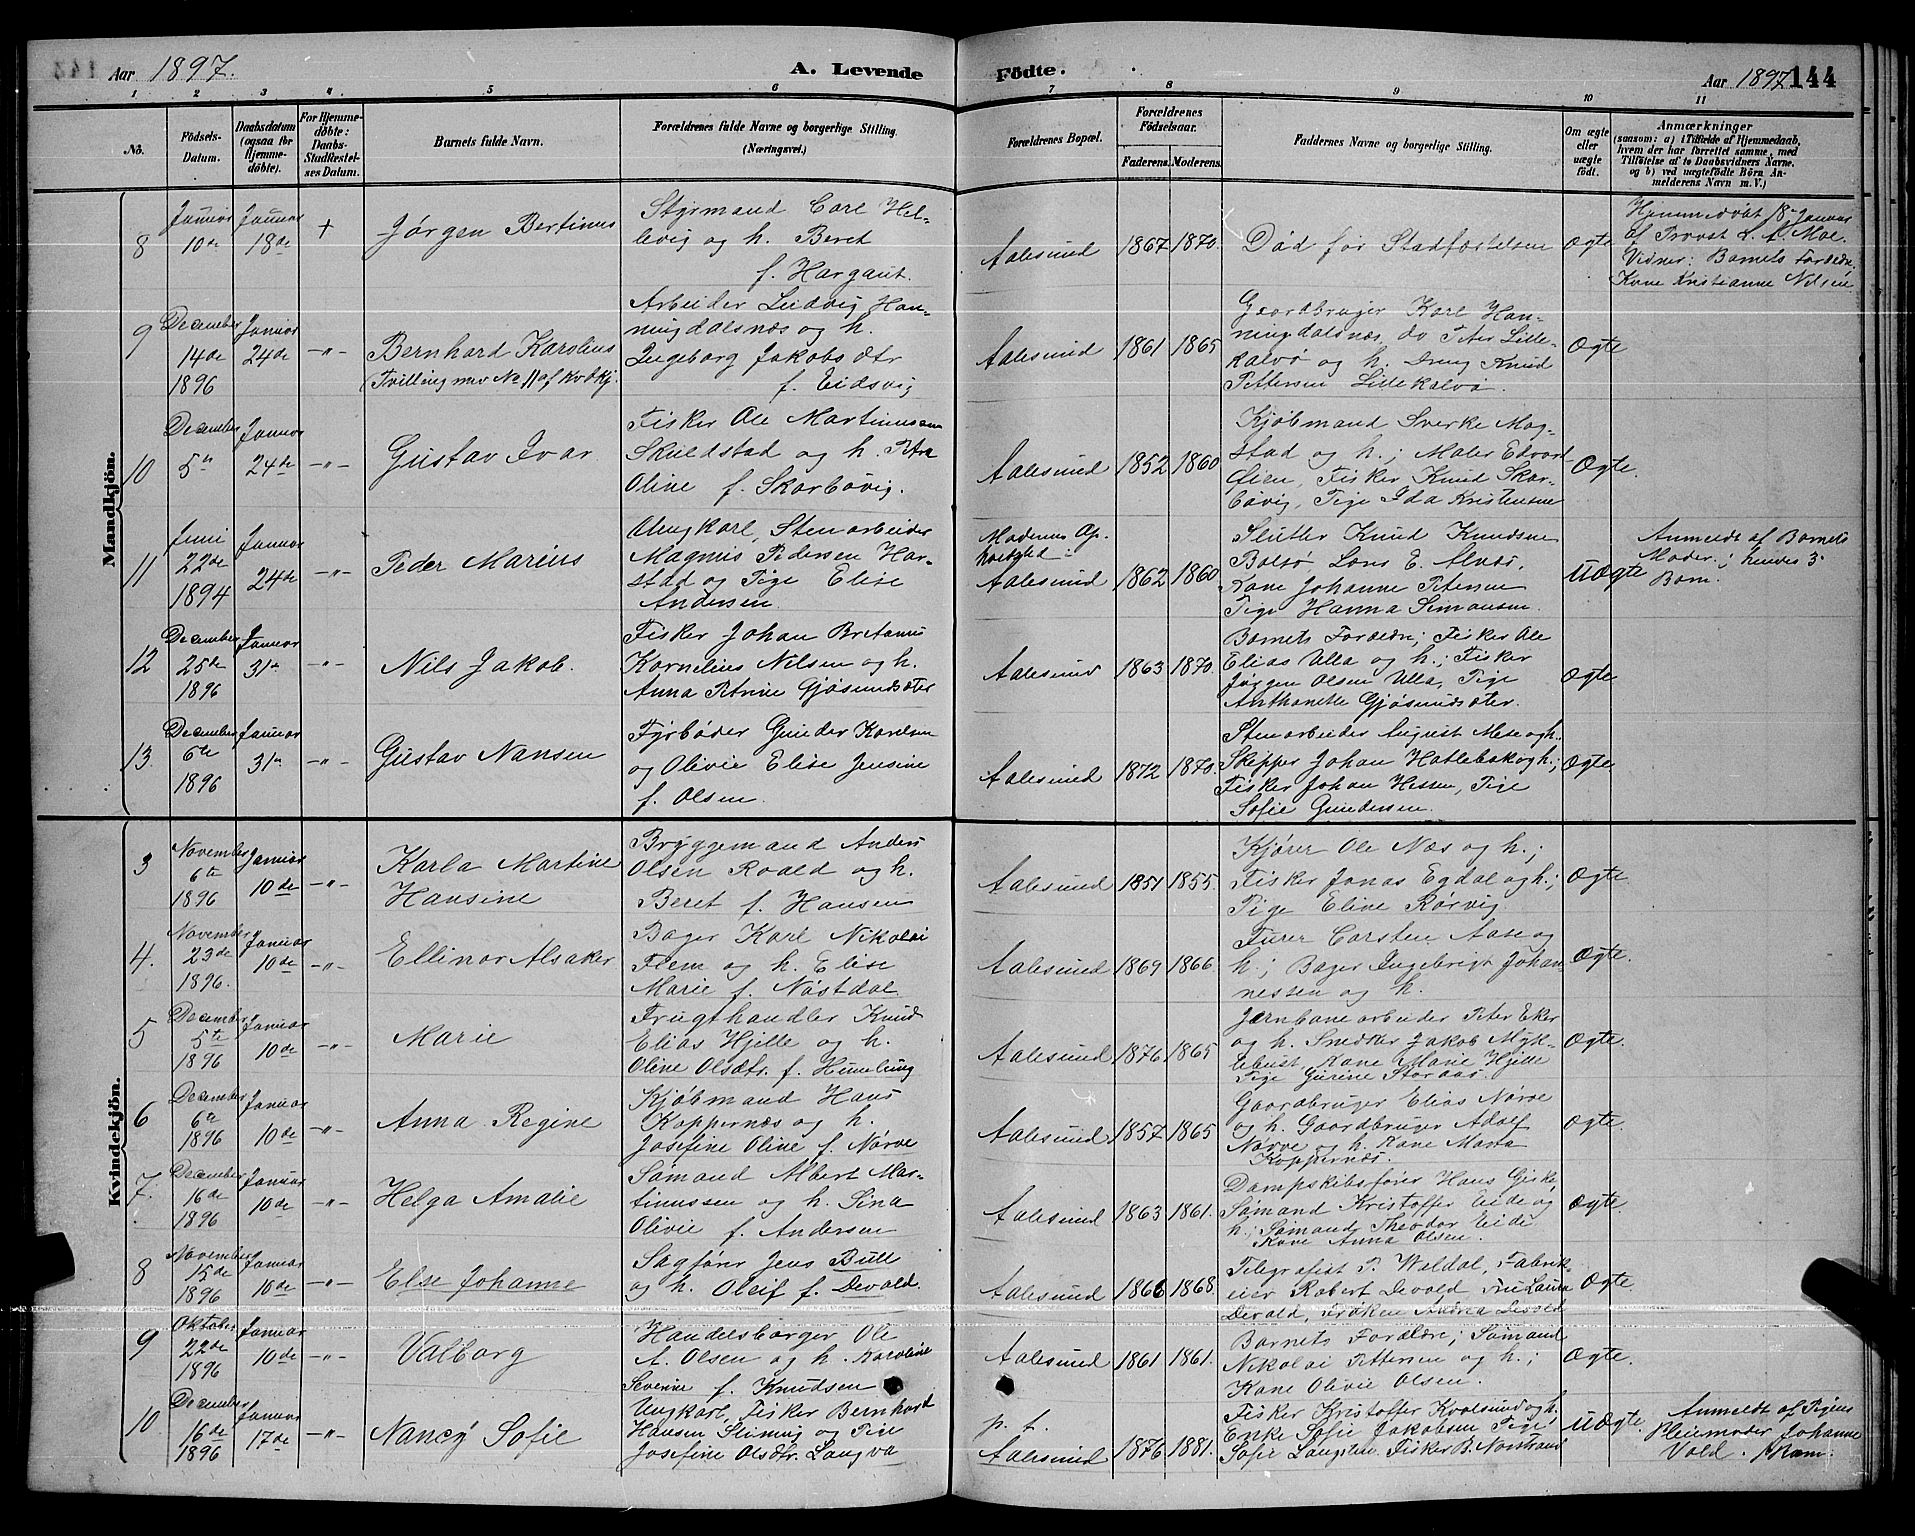 Aar 1897. A. Levende Födte. Aar 1897 144
1 2 3 4 5 6 7 8 9 10 11
No.
Födsels-
Datum.
Daabsdatum
(ogsaa for
Hjemme-
döbte).
For Hjemme-
döbte:
Daabs-
Stadfæstel-
ses Datum.
Barnets fulde Navn.
Forældrenes fulde Navne og borgerlige Stilling.
(Næringsvei.)
Forældrenes Bopæl.
Forældrenes
Födselsaar.
Faderens. Moderens.
Faddernes Navne og borgerlige Stilling.
Om ægte
eller
uægte
födt.
Anmærkninger
(saasom: a) i Tilfælde af Hjemmedaab,
hvem der har forrettet samme, med
Tilföielse af to Daabsvidners Navne,
og b) ved uægtefödte Börn An-
melderens Navn m. V.)
Mandkjön.
8
Januar
10de
Januar
18de
+
Jørgen Bertinus
Styrmand Carl Hel-
levig og h. Beret
f. Hargaut.
Aalesund 1867 1870.
Död før Stadfæstelsen
Ægte
Hjemmedöbt 18 Januar
af Provst
Vidner: Barnets Forældre,
Kone Kristianne Nilsen
9
December
14de
1896
Januar
24de
-"-
Bernhard Karolius
Tvilling mer No 11 af Kvdkj.
Arbeider Ludvig Han-
ningdalsnæs og h.
Ingeborg Jakobsdtr
f. Eidsvig
Aalesund 1861 1865
Gaardbruger Karl Han-
ningdalsnæs, do Peter Lille-
kalvø og h. Dreng Knud
Pettersen Lillekalvø.
Ægte
10
December
5te
Januar
24de
-"-
Gustav Ivar
Fisker Ole Martinussen
Skuldstad og h. Petra
Oline f. Skarbøvig.
Aalesund 1852 1860
Kjøbmand Sverke Mag-
stad og h.; Maler Edvard
Øien, Fisker Knud Skar-
bøvig, Pige Ida Kristensen
Ægte.
11
Juni
22de
1894
Januar
24de
-"-
Peder Marius
Ungkarl, Stenarbeider
Magnus Pedersen Har-
stad og Pige Elise
Andersen
Moderens Op-
holdsted
Aalesund 1862 1860
Slutter Knud Knudsen
Bolsø, Lons E. Alnæs,
Kone Johanne Petersen
Pige Hanna Simonsen.
Uægte
Anmeldt af Barnets
Moder; hendes 3
Barn.
12
December
25de
1896
Januar
31te
-"-
Nils Jakob.
Fisker Johan Bretanus
Kornelius Nilsen og h.
Anna Petrine Gjøsundsæter
Aalesund 1863 1870.
Barnets Forældre; Fisker Ole
Elias Ulla og h.; Fisker
Jørgen Olsen Ulla, Pige
Anthonette Gjøsundsæter.
Ægte
13.
December
6te
1896
Januar
31te
-"-
Gustav Nansen
Fyrbøder Gunder Karlsen
og Olivie Elise Jensine
f. Olsen.
Aalesund 1872 1870.
Stenarbeider August Mese og h.
Skipper Johan Hatlebak og h.;
Fisker Johan Hessen, Pige
Sofie Gundersen.
Ægte
Kvindekjön.
3
November
6te
1896
Januar
10de
-"-
Karla Martine
Hansine
Bryggemand Anders
Olsen Roald og h.
Beret f. Hansen
Aalesund 1851 1855.
Kjører Ole Næs og h.;
Fisker Jonas Egdal og h.;
Pige Eline Rørvig
Ægte.
4.
November
23de
1896.
Januar
10de
-"-
Ellinor Alsaker
Bager Karl Nikolai
Flem og h. Elise
Marie f. Nøstdal
Aalesund 1869 1866.
Fører Carsten Aase og
h.; Bager Ingebrigt Johan-
nessen og h.
Ægte.
5
December
5te
1896
Januar
10de
-"-
Marie
Frugthandler Knud
Elias Hjelle og h.
Oline Olsdtr. f. Humlung
Aalesund 1876 1865
Jernbanearbeider Peter Eker
og h. Snedker Jakob Myk-
lebust, Kone Marie Hjelle
Pige Gurine Storaas
Ægte.
6
December
6te
1896
Januar
10de
-"-
Anna Regine
Kjøbmand Hans
Koppernæs og h.
Josefine Oline f. Nørve
Aalesund 1857 1865
Gaardbruger Elias Nørve
og h. Gaardbruger Adolf
Nørve og h. Kone Marta
Koppernæs.
Ægte.
7.
December
16de
1896
Januar
10de
-"-
Helga Amalie
Sømand Albert Mar-
tinussen og h. Lina
Olivie f. Andersen
Aalesund 1863 1861.
Dampskibsfører Hans Giske,
Sømand Kristoffer Eide og
h.; Sømand Theodor Eide
Kone Anna Olsen.
Ægte.
8
November
15de
1896
Januar
10de
-"-
Else Johanne
Sagfører Jens Bull
og h. Oleif f. Devold
Aalesund 1866 1868.
Telegrafist P. Waldal, Fabrik-
eier Robert Devold Fru Laura
Devold, Frøken Andrea Devold
Ægte.
9
Oktober
22de
1896
Januar
10de
-"-
Valborg
Handelsborger Ole
A. Olsen og h. Karoline
Severine f. Knudsen
Aalesund 1861 1861.
Barnets Forældre; Sømand
Nikolai Pettersen og h.;
Kone Olivie Olsen.
Ægte.
10
December
16de
1896
Januar
17de
-"-
Nancy Sofie
Ungkarl Fisker Bernhard
Hansen Slinning og Pige
Josefine Olsdtr. Langva
p. t.
Aalesund 1876 1881.
Fisker Kristoffer Kvalsund og h.
Enke Sofie Jakobsen Pige
Sofie Langsten Fisker B. Nostrand
Uægte.
Anmeldt af Pigens
Pleiemoder Johanne
Vold. 1 Barn.